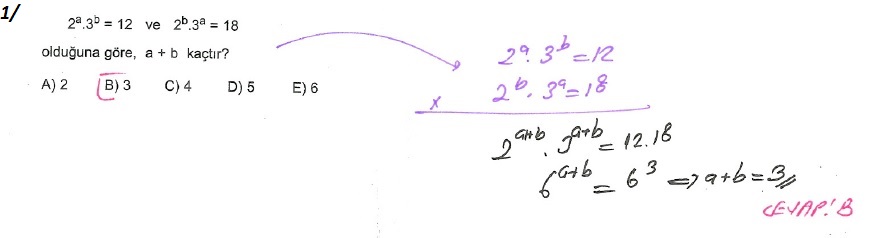 1/
2ᵃ.3ᵇ = 12 ve 2ᵇ.3ᵃ = 18
olduğuna göre, a + b kaçtır?
A) 2 B) 3 C) 4 D) 5 E) 6
2ᵃ. 3ᵇ = 12
2ᵇ. 3ᵃ = 18
x
2ᵃ⁺ᵇ . 3ᵃ⁺ᵇ = 12.18
6ᵃ⁺ᵇ = 6³ => a+b = 3
CEVAP: B